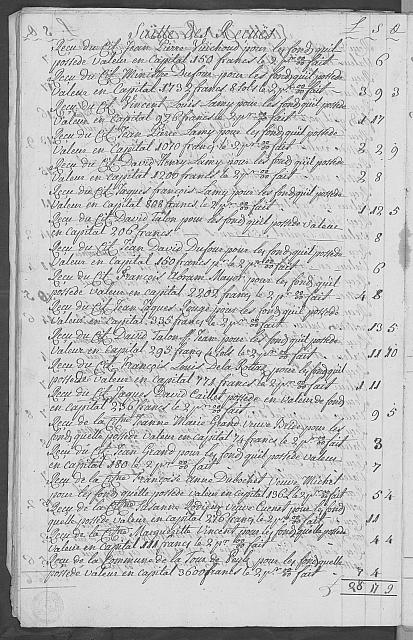 Suitte des Recettes L S d
Recu du Cit. Jean Pierre pour les fond quil
possede valeur en Capital 150 francs le 2 pr 00/00 fait - 6
Recu du Cit. Ministre Dufour pour les fond quil possede
Valeur en Capital 1732 francs 8 sols le 2 pr 00/00 fait - 3 9 3
Recu du Cit. Vincent Louis Lamy pour les fond quil possede
Valeur en Capital 926 francs le 2 pr 00/00 fait - 1 17
Recu du Cit. Jean Pierre Lamy pour les fond quil possede
Valeur en Capital 1070 francs le 2 pr 00/00 fait - 2 2 9
Recu du Cit. David Lamy pour les fond quil possede
Valeur en Capital 1200 francs le 2 pr 00/00 fait - 2 8
Recu du Cit. Jaques françois Lamy pour les fond quil possede
Valeur en Capital 808 francs le 2 pr 00/00 fait - 1 12 5
Recu du Cit. David Talon pour les fond quil possede valeur
en Capital 206 francs - 8
Recu du Cit. Jean David Dufour pour les fond quil possede
Valeur en Capital 150 francs le 2 pr 00/00 fait - 6
Recu du Cit. François Abram pour les fond quil
possede Valeur en Capital 2202 francs le 2 pr 00/00 fait - 4 8
Recu du Cit. Jean Jaques pour les fond quil possede
Valeur en Capital 335 francs le 2 pr 00/00 fait - 13 5
Recu du Cit. David Talon Jean pour les fond quil possede
Valeur en Capital 295 francs sols le 2 pr 00/00 fait - 11 10
Recu du Cit. François Louis De la Rottaz pour les fond quil
possede Valeur en Capital 778 francs le 2 pr 00/00 fait - 1 11
Recu du Cit. Jaques David Caillet possede en Valeur de fond
en Capital 236 francs le 2 pr 00/00 fait - 9 5
Recu de la Citne Jeanne Marie Grand Veuve pour les
fond quelle possede valeur en Capital 74 francs le 2 pr 00/00 fait - 3
Recu du Cit. Jean Grand pour les fond quil possede Valeur
en Capital 180 le 2 pr 00/00 fait - 7
Recu de la Citne Françoise Anne Dubochet Veuve
pour les fond quelle possede valeur en Capital 136 le 2 pr 00/00 fait 5 4
Recu de la Citne Susanne Veuve pour les fond
quelle possede valeur en capital 276 francs le 2 pr 00/00 fait - 11
Recu de la Citne Margueritte Vincent pour les fond quelle possede
Valeur en Capital 111 francs le 2 pr 00/00 fait - 4 4
Recu de la Commune de la Tour de Peylz pour les fond quelle
possede Valeur en Capital 3600 francs le 2 pr 00/00 fait - 7 4
28 17 9